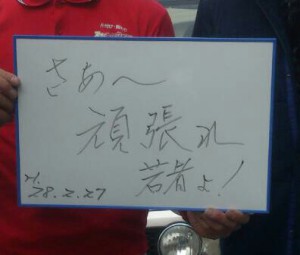 さあ〜
頑張れ
若者よ!
H.28.2.27